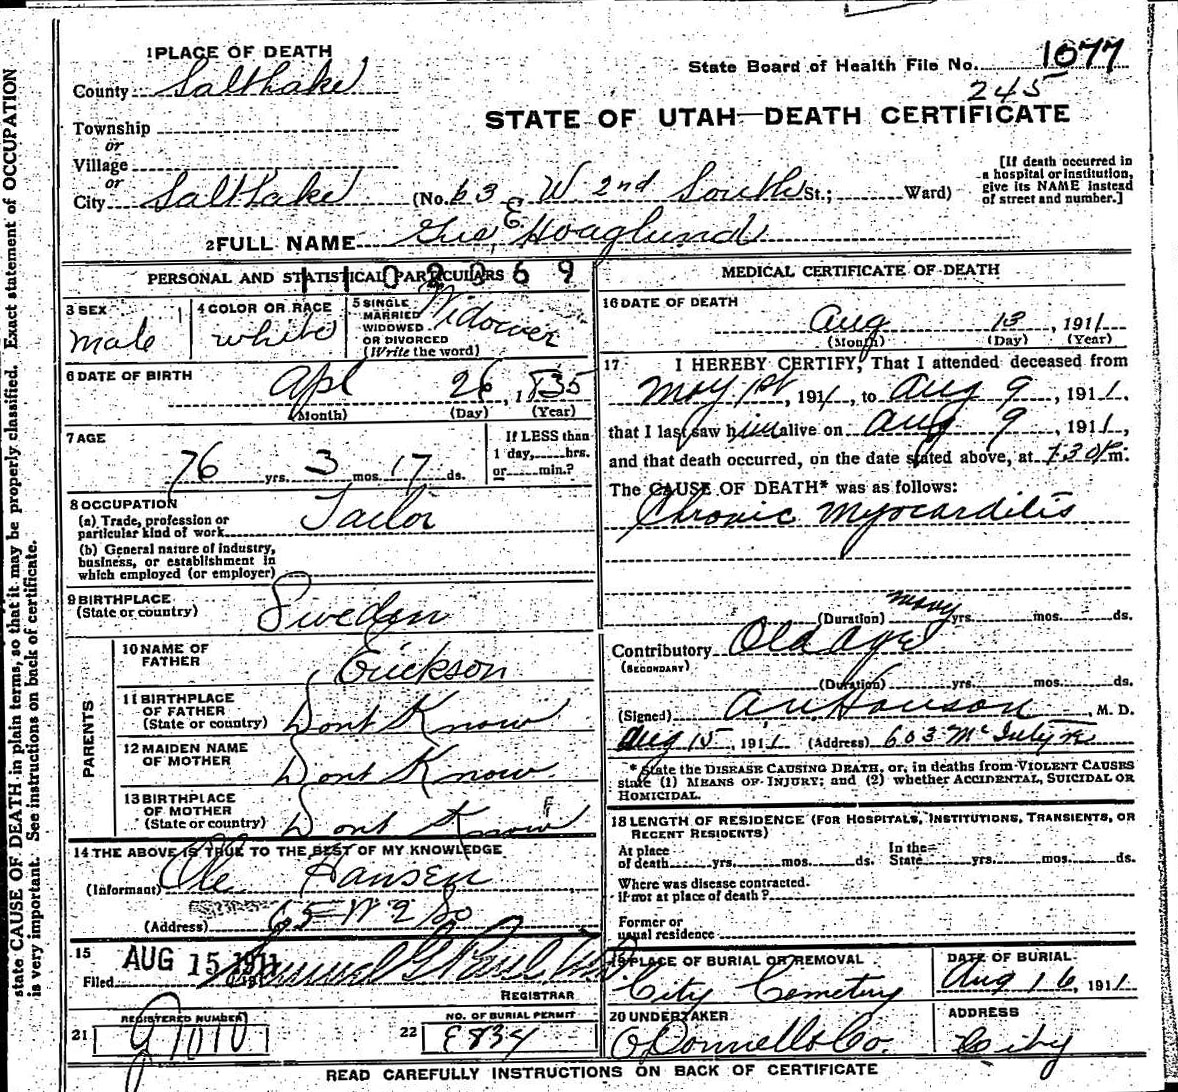 state CAUSE OF DEATH in plain terms, so that it may be properly classified. Exact statement of OCCUPATION
is very important. See instructions on back of certificate.
1 PLACE OF DEATH
County Salt Lake
Township
or
Village
or
City Salt Lake
State Board of Health File No. 1077
245
STATE OF UTAH—DEATH CERTIFICATE
(No. 63 W 2nd South St.; Ward)
[If death occurred in
a hospital or institution,
give its NAME instead
of street and number.]
2 FULL NAME Gus, E Hoaglund
PERSONAL AND STATISTICAL PARTICULARS
1102369
3 SEX
male
4 COLOR OR RACE
white
5 SINGLE
MARRIED
WIDOWED
OR DIVORCED
(Write the word)
Widower
6 DATE OF BIRTH
Apl 26, 1835
(Month) (Day) (Year)
7 AGE
76 yrs. 3 mos. 17 ds.
If LESS than
1 day, hrs.
or min.?
8 OCCUPATION
(a) Trade, profession or
particular kind of work
Tailor
(b) General nature of industry,
business, or establishment in
which employed (or employer)
9 BIRTHPLACE
(State or country)
Sweden
PARENTS
10 NAME OF
FATHER
Erickson
11 BIRTHPLACE
OF FATHER
(State or country)
Dont Know
12 MAIDEN NAME
OF MOTHER
Dont Know
13 BIRTHPLACE
OF MOTHER
(State or country)
Dont Know
F
14 THE ABOVE IS TRUE TO THE BEST OF MY KNOWLEDGE
(Informant) Ole Hansen
(Address) 65 W 2 So
15
Filed AUG 15 1911
REGISTRAR
21 REGISTERED NUMBER
22 NO. OF BURIAL PERMIT
E834
MEDICAL CERTIFICATE OF DEATH
16 DATE OF DEATH
Aug 13, 1911
(Month) (Day) (Year)
17 I HEREBY CERTIFY, That I attended deceased from
May 1st, 1911, to Aug 9, 1911,
that I last saw him alive on Aug 9, 1911,
and that death occurred, on the date stated above, at 130 m.
The CAUSE OF DEATH* was as follows:
Chronic Myocarditis
(Duration) many yrs. mos. ds.
Contributory Old age
(SECONDARY)
(Duration) yrs. mos. ds.
(Signed) M. D.
Aug 15, 1911 (Address) 603 McIntyre
* State the DISEASE CAUSING DEATH, or, in deaths from VIOLENT CAUSES
state (1) MEANS OF INJURY; and (2) whether ACCIDENTAL, SUICIDAL OR
HOMICIDAL.
18 LENGTH OF RESIDENCE (FOR HOSPITALS, INSTITUTIONS, TRANSIENTS, OR
RECENT RESIDENTS)
At place
of death yrs. mos. ds.
In the
State yrs. mos. ds.
Where was disease contracted.
if not at place of death?
Former or
usual residence
19 PLACE OF BURIAL OR REMOVAL
City Cemetery
DATE OF BURIAL
Aug 16, 1911
20 UNDERTAKER
O'Donnell & Co.
ADDRESS
City
READ CAREFULLY INSTRUCTIONS ON BACK OF CERTIFICATE